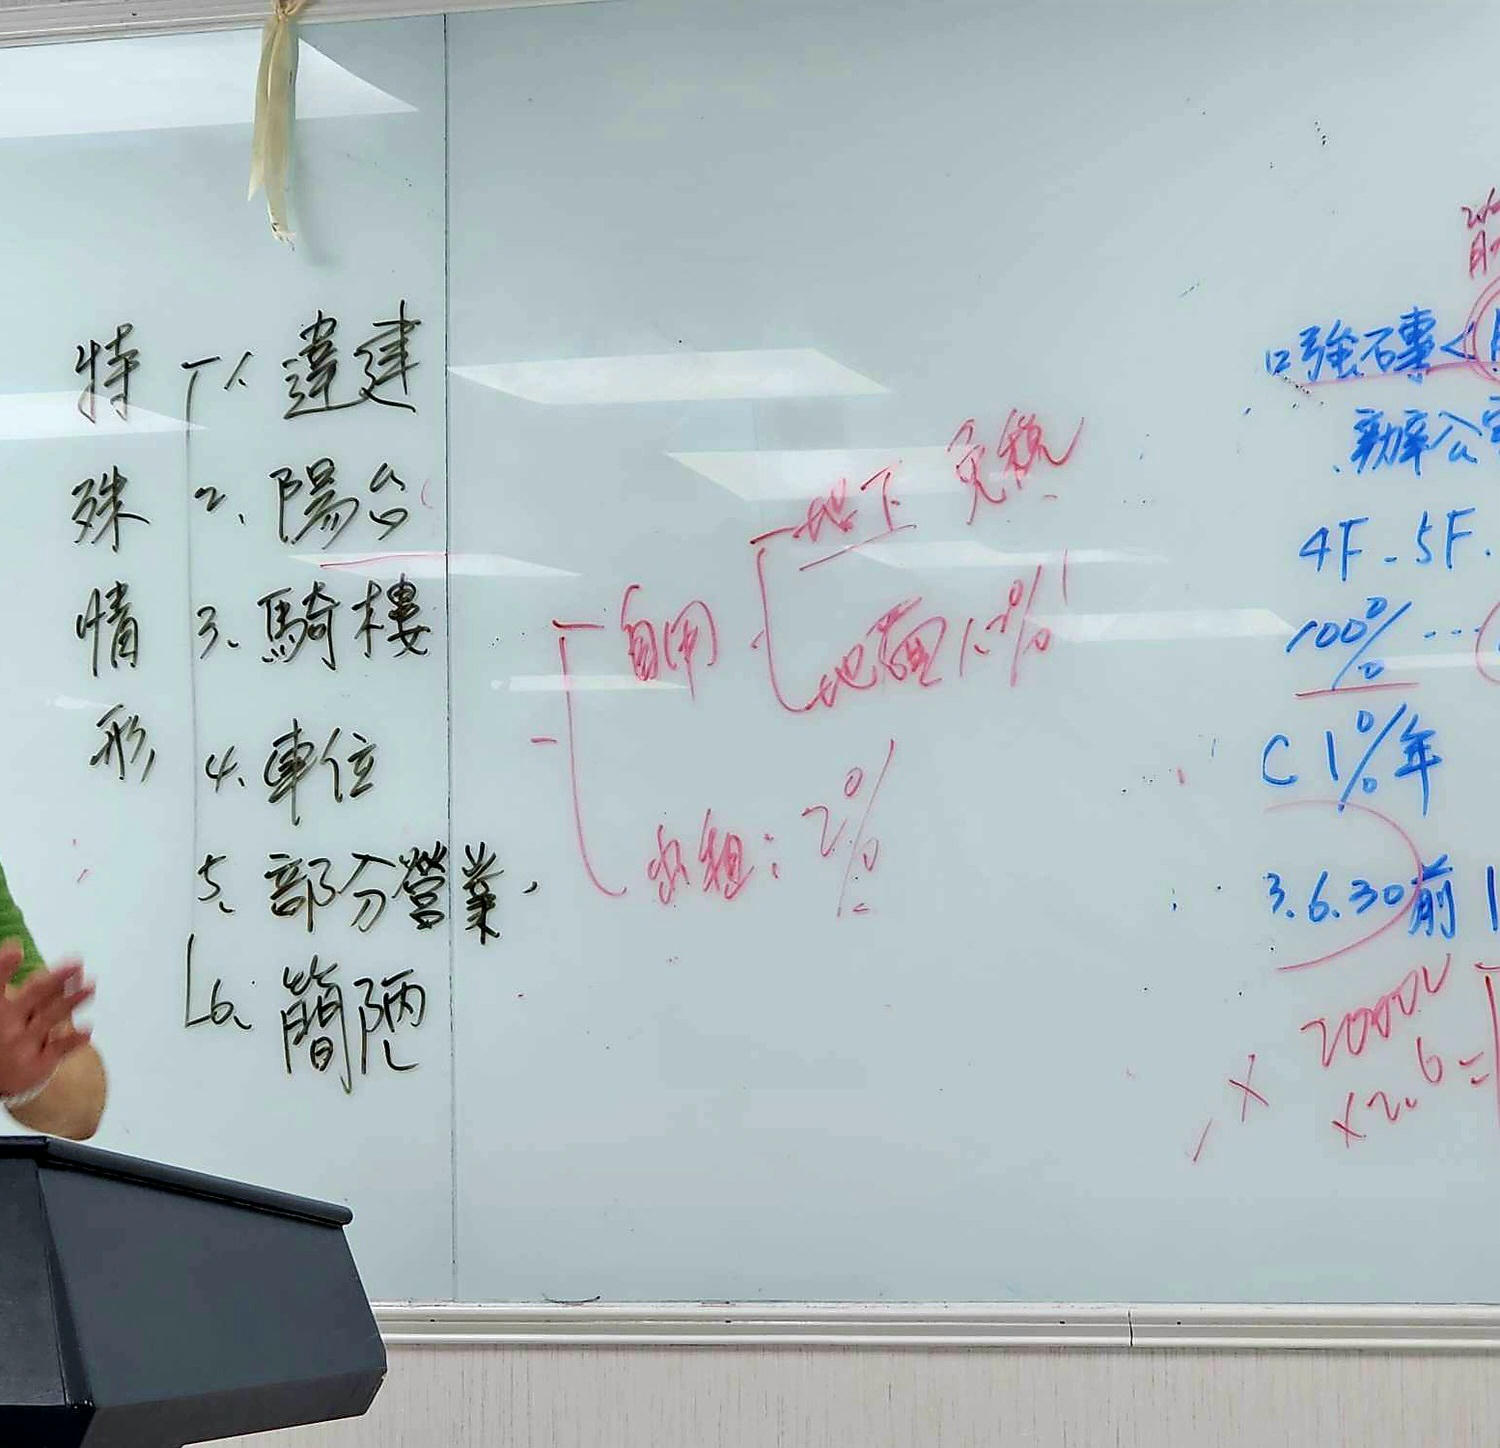 特殊情形
1. 違建
2. 陽台
3. 騎樓
4. 車位
5. 部分營業
6. 簡陋
自用
地下 免稅
地面 1.2%
出租：2%
強磚<
辦公室
4F-5F.
100% ...
C 1%年
3.6.30前
2000
×2.6=